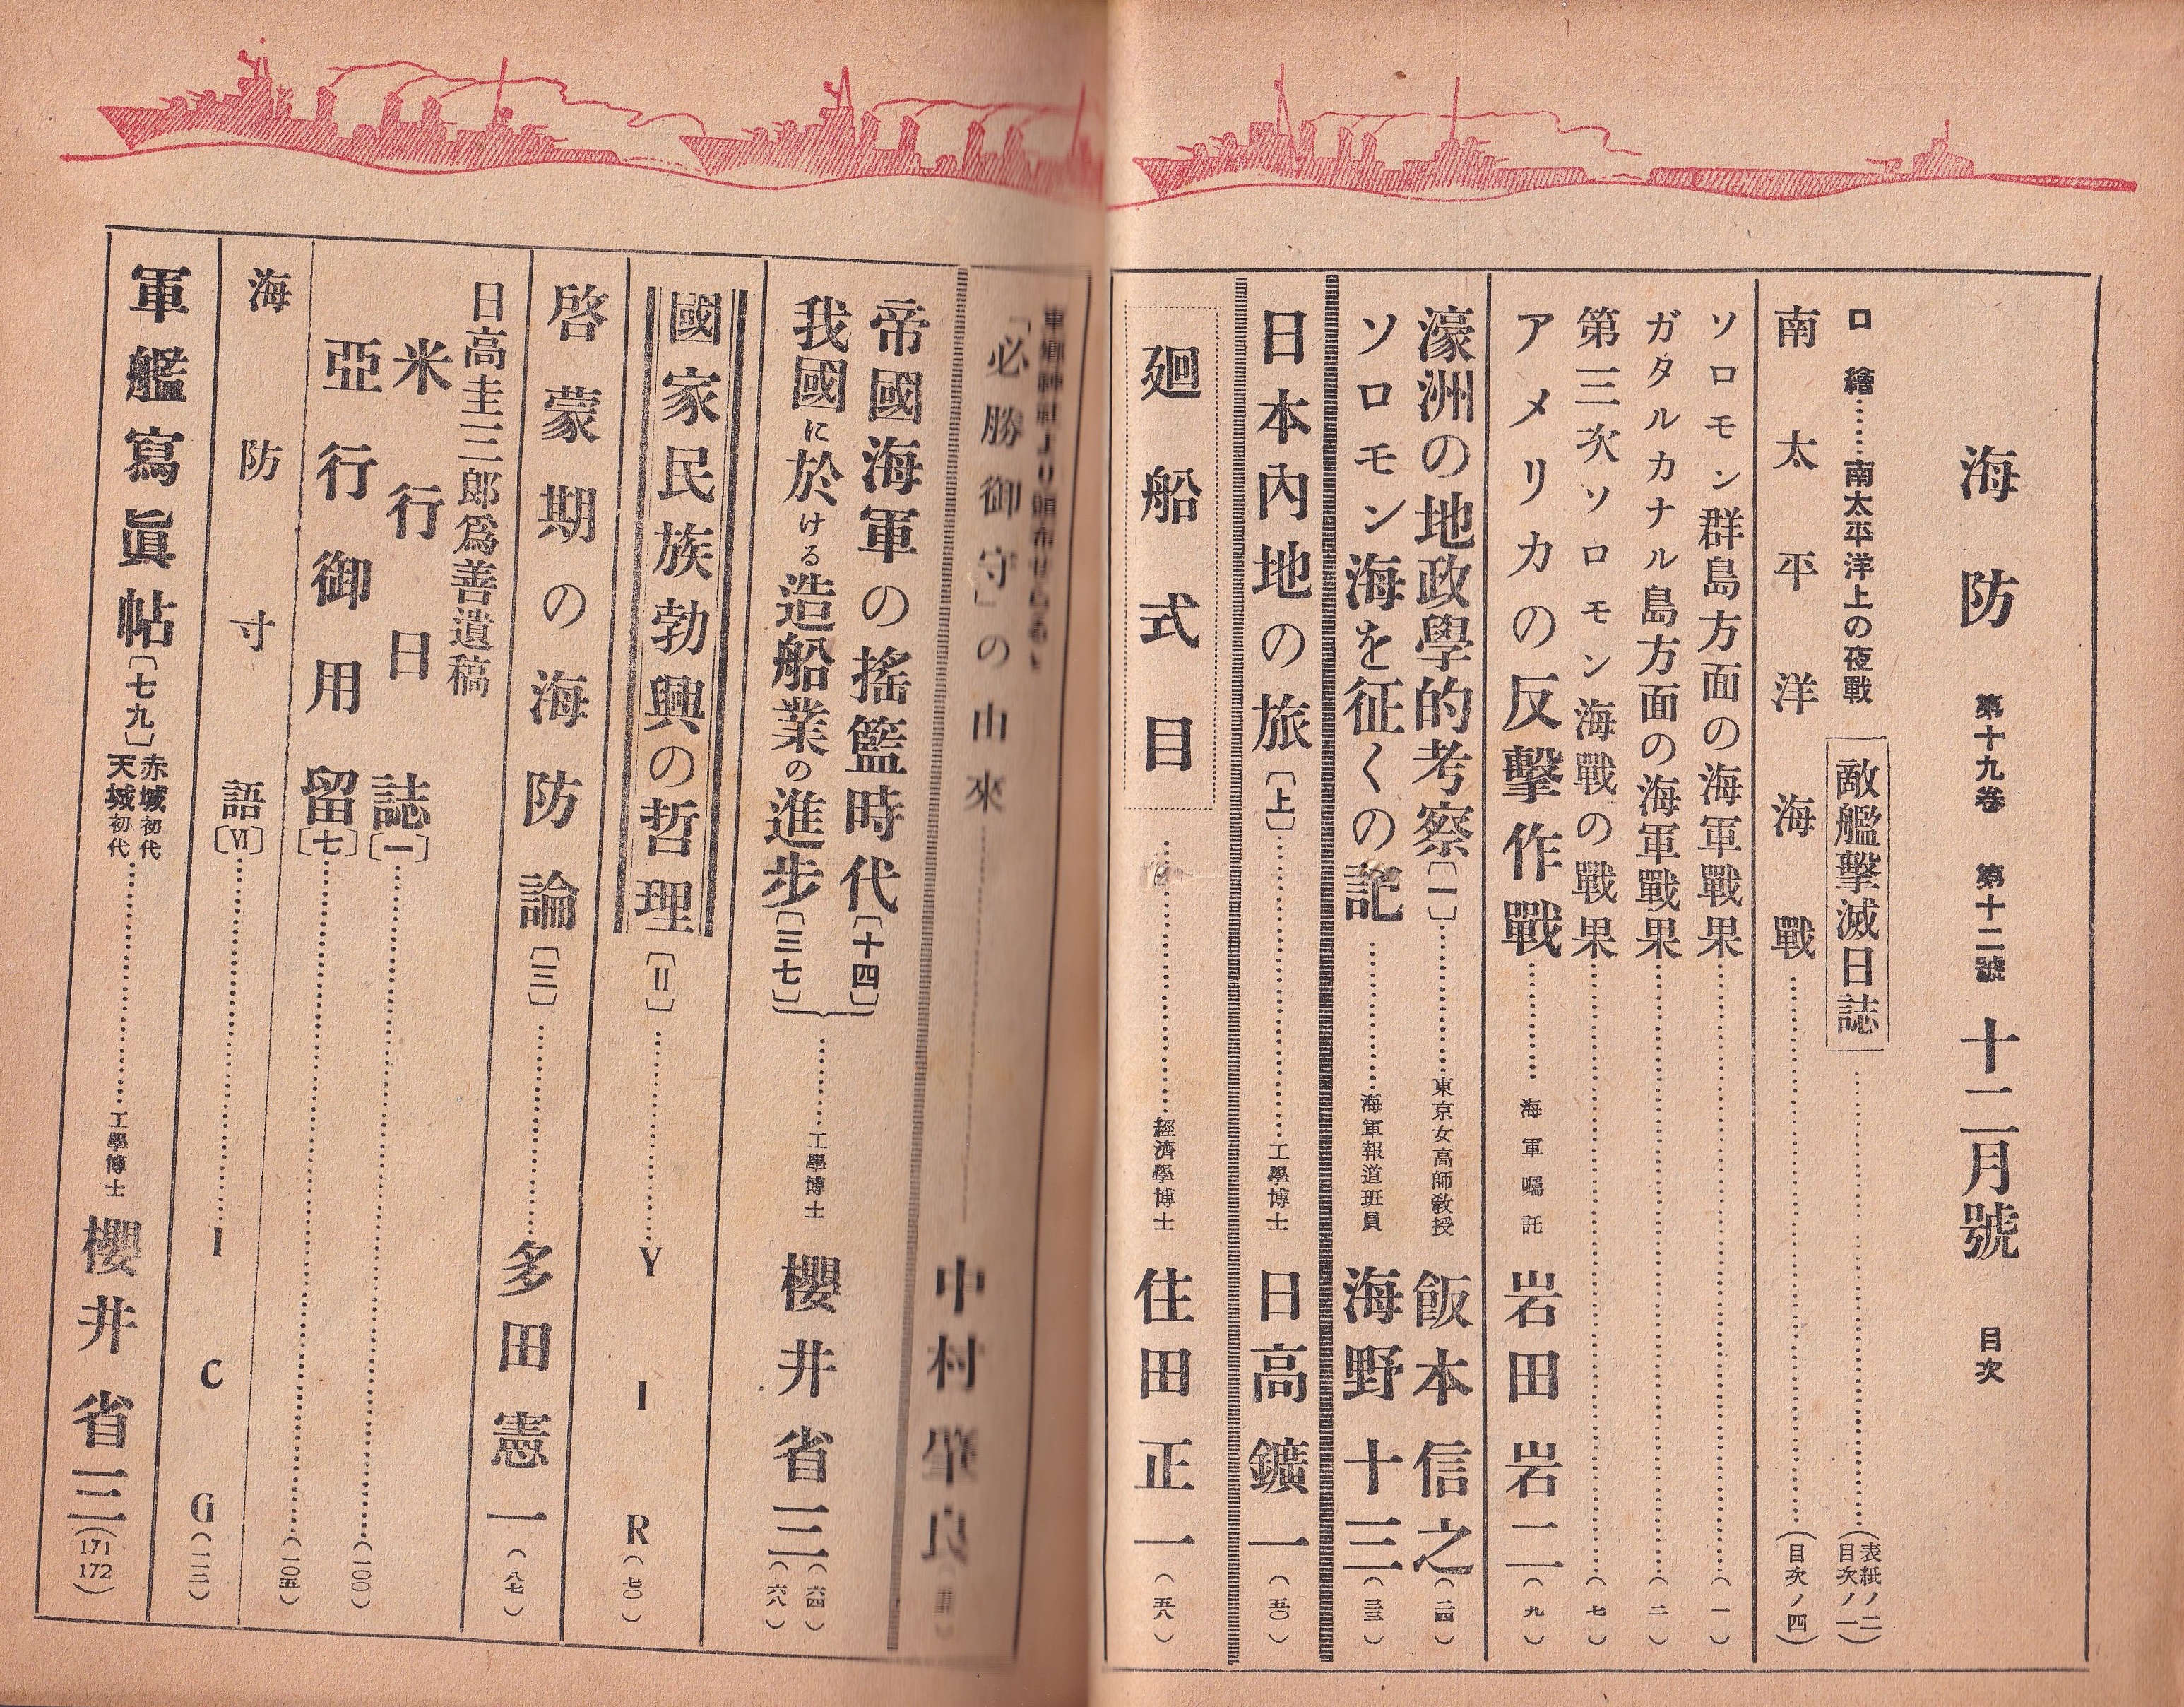 海防 第十九卷 第十二號 十二月號 目次
口繪……南太平洋上の夜戰 敵艦擊滅日誌……(表紙ノ二)(目次ノ一)
南太平洋海戰……(目次ノ四)
ソロモン群島方面の海軍戰果……(一)
ガタルカナル島方面の海軍戰果……(二)
第三次ソロモン海戰の戰果……(七)
アメリカの反擊作戰……海軍囑託 岩田岩二(九)
濠洲の地政學的考察〔一〕……東京女高師敎授 飯本信之(二四)
ソロモン海を征くの記……海軍報道班員 海野十三(三三)
日本內地の旅〔上〕……工學博士 日高鑛一(五〇)
廻船式目……經濟學博士 住田正一(五八)
東鄕神社より頒布せらるゝ
「必勝御守」の由來……中村 良
帝國海軍の搖籃時代〔十四〕
我國に於ける造船業の進步〔三七〕……工學博士 櫻井省三(六四)(六八)
國家民族勃興の哲理〔II〕……Y I R(七〇)
啓蒙期の海防論〔三〕……多田憲一(八七)
日高圭三郎爲善遺稿
米行日誌〔一〕……(一〇〇)
亞行御用留〔七〕……(一〇五)
海防寸語〔VI〕……I C G(一一二)
軍艦寫眞帖〔七九〕赤城初代 天城初代……工學博士 櫻井省三(171 172)